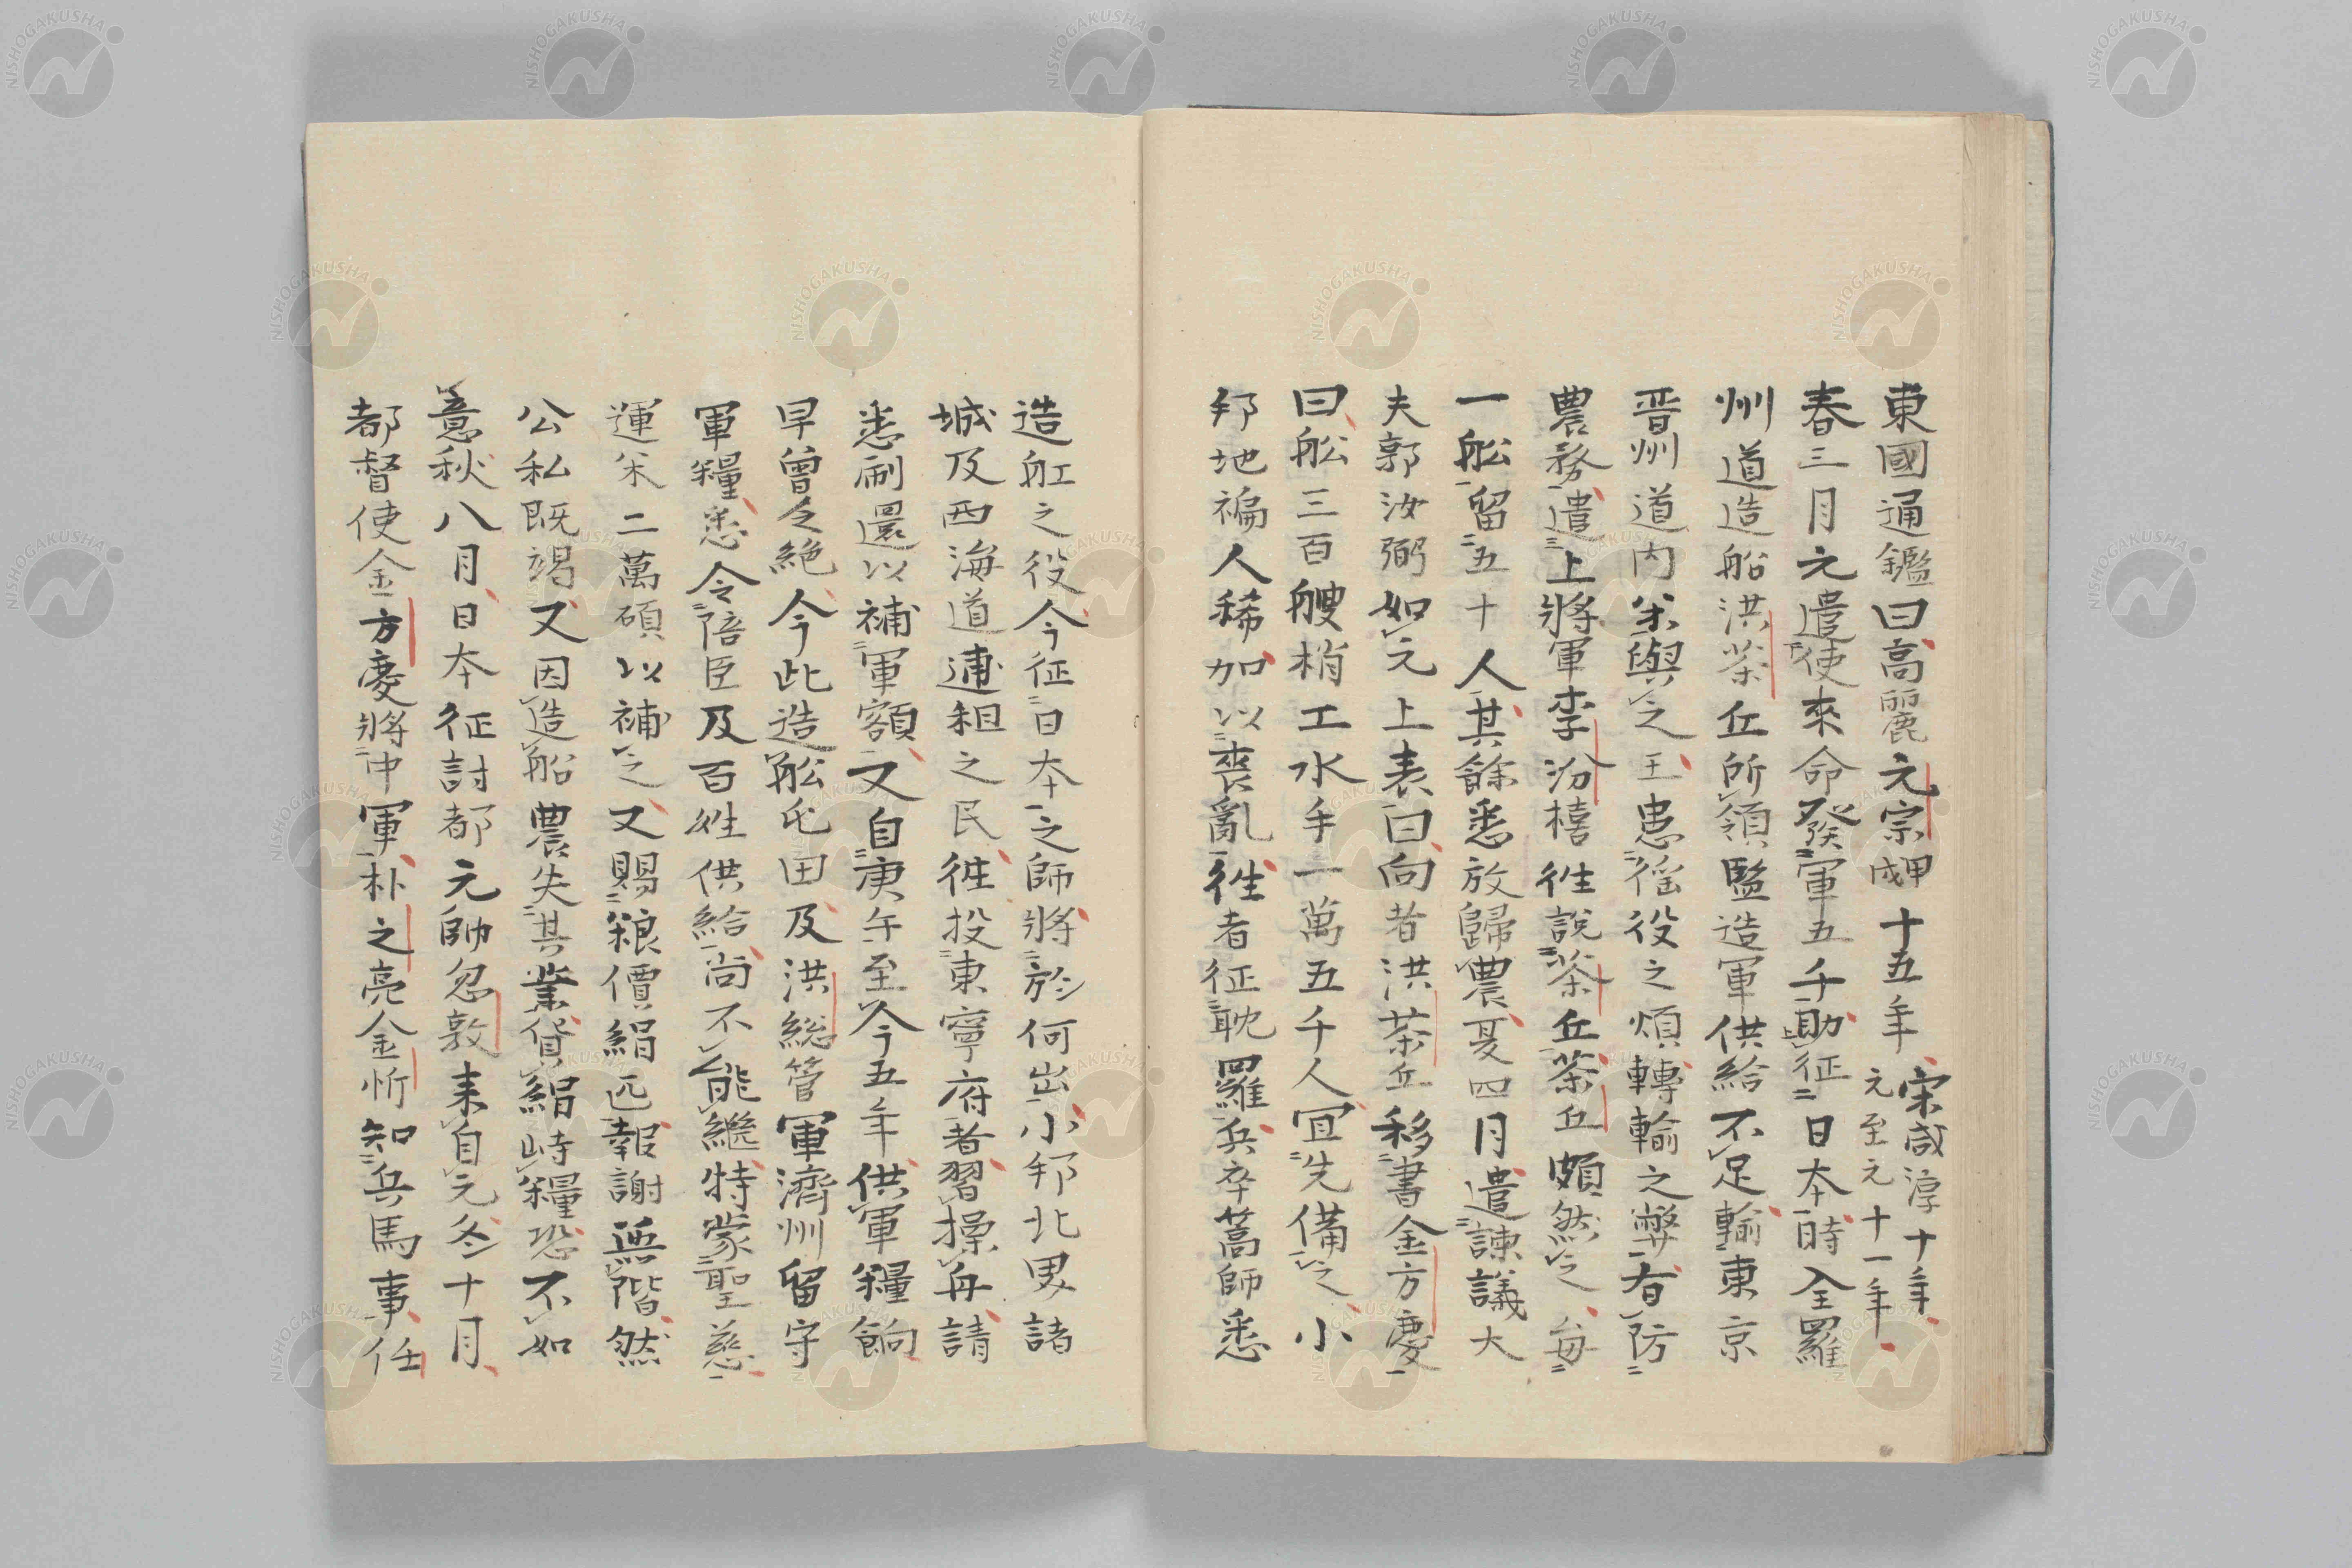 東國通鑑曰高麗元宗甲戌十五年宋咸淳十年元至元十一年
春三月元遣使來命發軍五千助征日本時全羅
州道造船洪茶丘所領監造軍供給不足輸東京
晋州道内米與之王患徭役之煩轉輸之弊有防
農務遣上將軍李汾禧徃說茶丘茶丘頗然之每
一舩留五十人其餘悉放歸農夏四月遣諫議大
夫郭汝弼如元上表曰向者洪茶丘移書金方慶
曰舩三百艘梢工水手一萬五千人冝先備之小
邦地褊人稀加以喪亂徃者征耽羅兵卒篙師悉
造舡之役今征日本之師將於何出小邦北界諸
城及西海道逋租之民徃投東寧府者習操舟請
悉刷還以補軍額又自庚午至今五年供軍糧餉
早曾令絶今此造舩屯田及洪総管軍濟州留守
軍糧悉令陪臣及百姓供給尚不能繼特蒙聖慈
運米二萬碩以補之又賜粮價絹匹報謝無階然
公私既竭又因造船農失其業貨絹峙糧恐不如
意秋八月日本征討都元帥忽敦来自元冬十月
都督使金方慶將中軍朴之亮金忻知兵馬事任